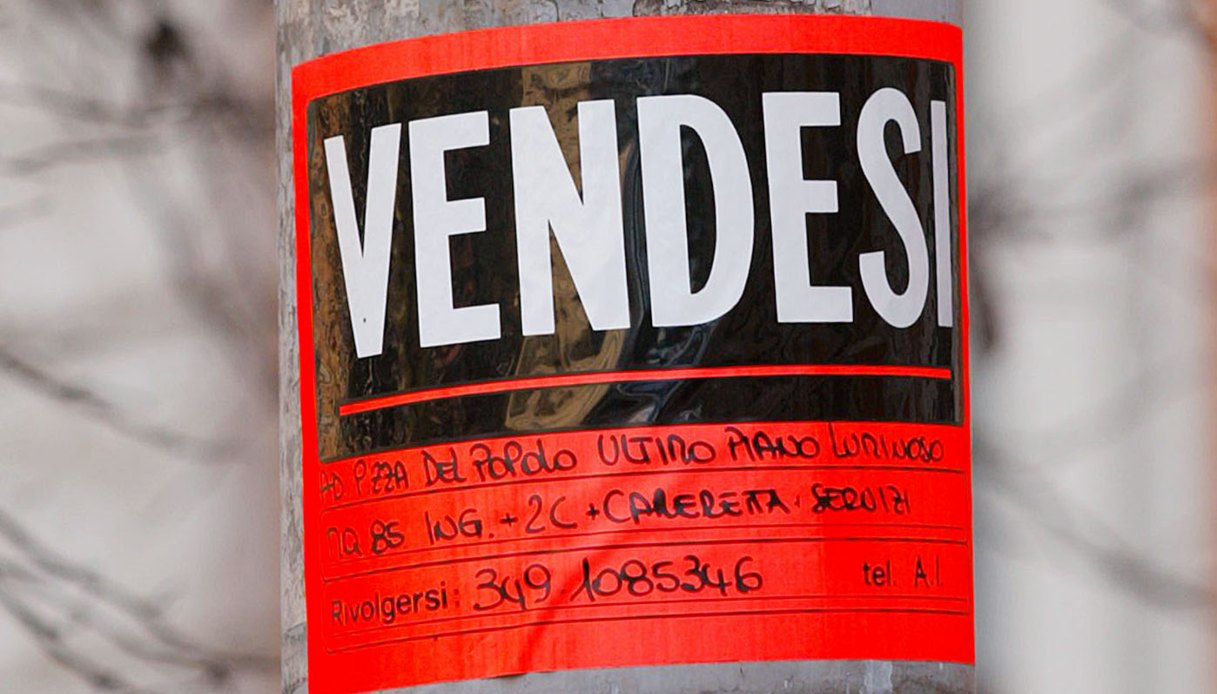 VENDESI
AD. P.ZZA DEL POPOLO ULTIMO PIANO LUMINOSO
MQ 85 ING. + 2C + CAMERETTA + SERVIZI
Rivolgersi: 349 1085346 tel. A.I.